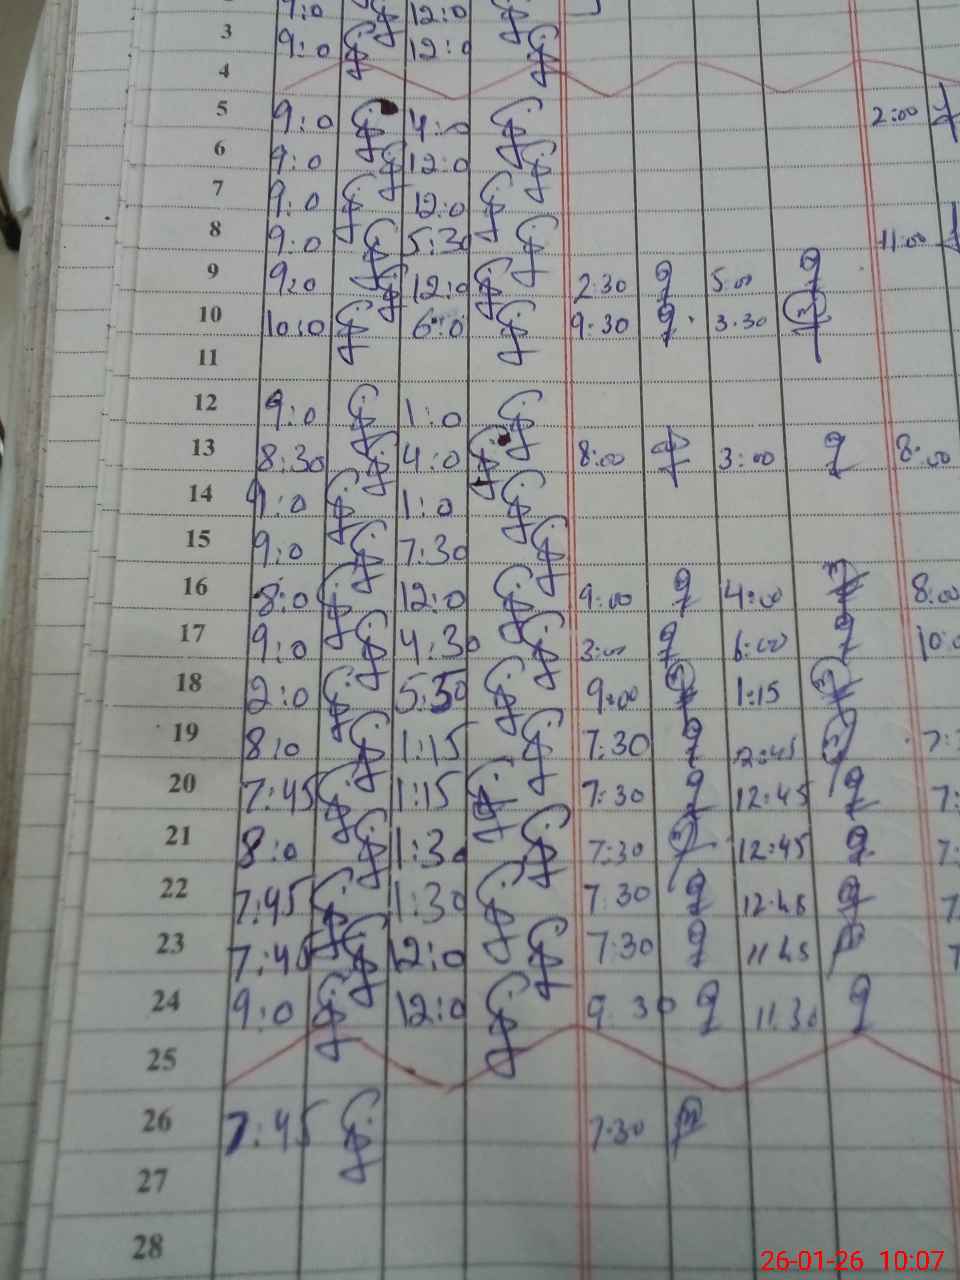 9:0 12:0
3 9:0 12:0
4
5 9:0 4:0 2:00
6 9:0 12:0
7 9:0 12:0
8 9:0 5:30 11:00
9 9:0 12:0 2:30 5:00
10 10:0 6:0 9:30 3.30
11
12 9:0 1:0
13 8:30 4:0 8:00 3:00 8:00
14 9:0 1:0
15 9:0 7:30
16 8:0 12:0 9:00 4:00 8:00
17 9:0 4:30 3:00 6:00 10:0
18 2:0 5:30 9:00 1:15
19 8:0 1:15 7:30 12:45 7:3
20 7:45 1:15 7:30 12:45 7:
21 8:0 1:30 7:30 12:45 7:
22 7:45 1:30 7.30 12.45 7
23 7:45 12:0 7:30 11 45 7
24 9:0 12:0 9.30 11.30
25
26 7:45 7.30
27
28
26-01-26 10:07